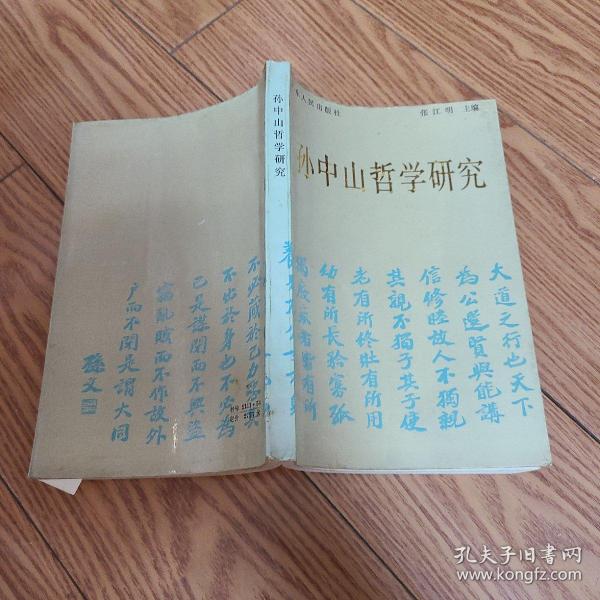 人民出版社
张江明 主编
孙中山哲学研究
孙中山哲学研究
大道之行也天下
為公選賢與能講
信修睦故人不獨親
其親不獨子其子使
老有所終壯有所用
幼有所長矜寡孤
獨廢疾者皆有所
不必藏於己力惡其
不出於身也不必為
己是謀閉而不興盜
竊亂賊而不作故外
户而不閉是謂大同
孫文
孔夫子旧书网
www.kongfz.com